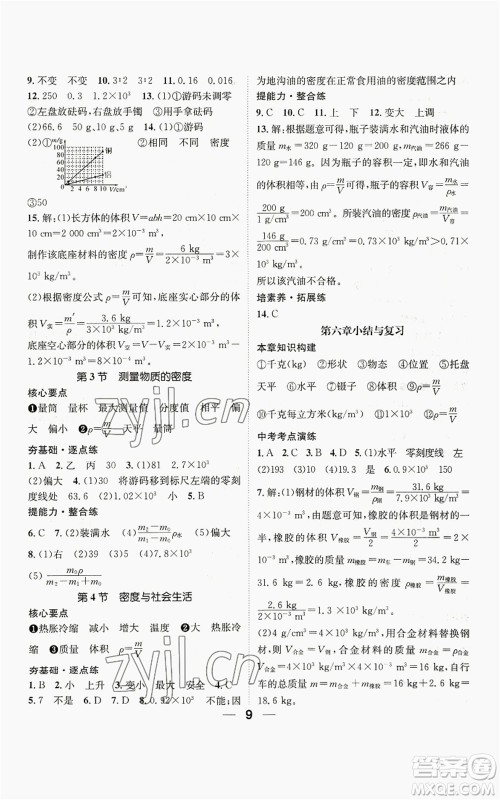 9. 不变 不变 10. 3∶2 3∶2 11. 0.16 0.016
12. 250 0.3 1.2×10³ 13. (1)①游码未调零
②左盘放砝码,右盘放手镯 ③用手拿砝码
(2)66.6 50 g、10 g、5 g ②相同 不同
14. (1)①游码
m/g
100
80
60
40
20
0 2 4 6 8 10 V/cm³
铜
铝
③50
15. 解:(1)长方体的体积 V=abh=20 cm×10 cm
×10 cm=2 000 cm³=2×10⁻³ m³
制作该底座的材料密度 ρ=m/V=6 kg/(2×10⁻³ m³)=3×
10³ kg/m³。
(2)根据密度公式 ρ=m/V 可得,底座实心部分的体
积 V实=m′/ρ=3.6 kg/(3×10³ kg/m³)=1.2×10⁻³ m³
底座空心部分的体积 V空=V−V实=2×10⁻³ m³−
1.2×10⁻³ m³=0.8×10⁻³ m³。
第3节 测量物质的密度
核心要点
❶量筒 量杯 最大测量值 分度值 相平 偏
大 偏小 ❷ρ=m/V 天平 量筒
夯基础·逐点练
1. A 2. 乙 丙 30 3. (1)51 5 (2)1.02×10³
(2)偏大 4. (1)30 将游码移到标尺左端的零刻
度线处 63.6 (2)1.02×10³ (3)偏大 5. C
提能力·整合练
6. C 7. (2)装满水 (4)(m₂−m₀)/(m₁−m₀)
8. (1)右 (2)39 (3)35 (4)0.9×10³
(5)m₀ρ水/(m₂−m₁−m₀)
第4节 密度与社会生活
核心要点
❶热胀冷缩 减小 增大 大于 ρ=m/V ❷大 热胀
冷缩
夯基础·逐点练
1. B 2. D 3. 小 上升 变小 最大 安全 4. C
5. 7 不是 6. D 7. B 8. 0.9×10³ 不能;因
为地沟油的密度在正常食用油的密度范围之内
提能力·整合练
9. C 10. C 11. 上 下 12. 变大 上调
13. 解:根据题意可得,瓶子装满水和汽油时液体的
质量 m水=320 g−120 g=200 g,m汽油=266 g−
120 g=146 g。因为瓶子的体积一定,即水和汽油
的体积与瓶子的容积相等,则瓶子的容积 V容=m水/ρ水=
200 g/(1 g/cm³)=200 cm³。所装汽油的密度 ρ汽油=m汽油/V容=
146 g/200 cm³=0.73 g/cm³=0.73×10³ kg/m³>0.72×
10³ kg/m³。
则该汽油不合格。
培素养·拓展练
14. C
第六章小结与复习
本章知识构建
①千克(kg) ②形状 ③质量 ④位置 ⑤托盘
天平 ⑥水平 ⑦游码 ⑧m/V ⑨千克/米³(kg/m³)
⑩ρ=m/V
中考考点演练
1. A 2. C 3. A 4. (1)水平 零刻度线 左
(2)193 (4)19.3 5. 大 3 6. 0.9×10³
7. 解:(1)钢材的体积 V钢=m钢/ρ钢=31.6 kg/(7.9×10³ kg/m³)=4×
10⁻³ m³,橡胶的体积 V橡胶=V钢/2=(4×10⁻³ m³)/2=2×
10⁻³ m³,橡胶的质量 m橡胶=m总−m钢=34 kg−
31.6 kg=2.4 kg,橡胶的密度 ρ橡胶=m橡胶/V橡胶=
2.4 kg/(2×10⁻³ m³)=1.2×10³ kg/m³。
(2)4 g/cm³=4×10³ kg/m³,用合金材料替换钢
材,则 V合金=V钢=4×10⁻³ m³,合金质量 m合金=ρ合金
V合金=4×10³ kg/m³×4×10⁻³ m³=16 kg,自行
车的总质量 m=m合金+m橡胶=16 kg+2.4 kg=
18.4 kg。
9
zyjl.cn
zyjl.cn
作业精灵